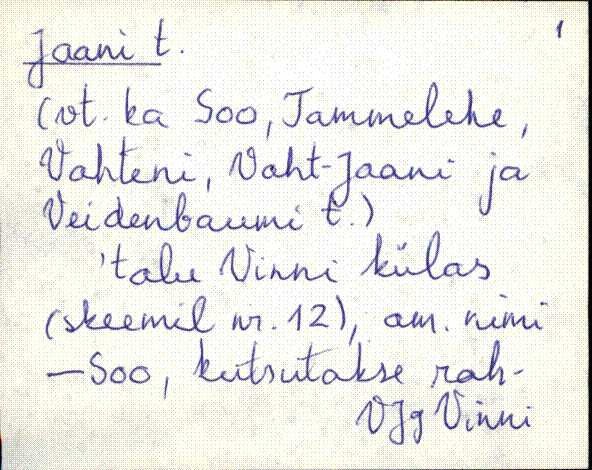 1
Jaani t.
(vt. ka Soo, Tammelehe,
Vahteni, Vaht-Jaani ja
Veidenbaumi t.)
'talu Vinni külas
(skeemil nr. 12), am. nimi
—Soo, kutsutakse rah-
VJg Vinni